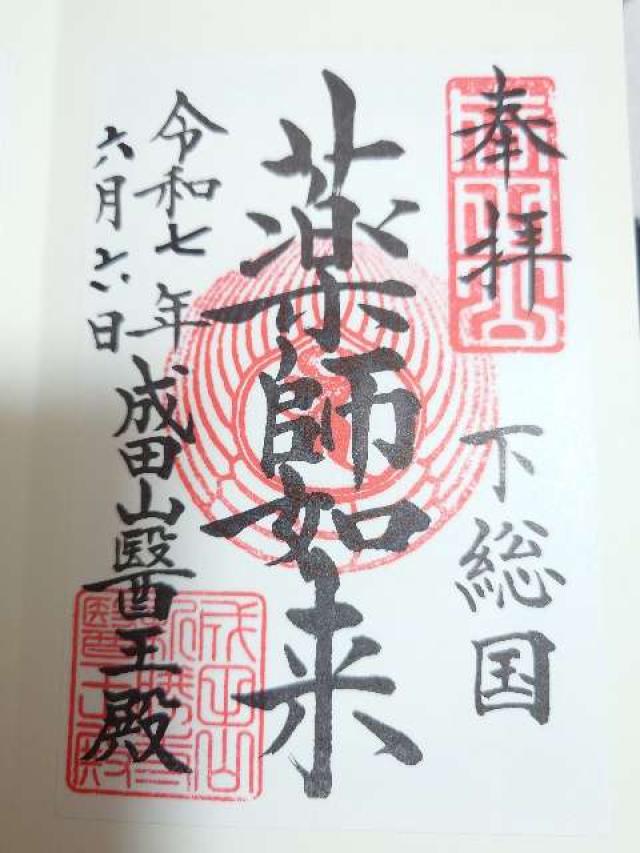 奉拝
下総国
薬師如来
令和七年
六月六日
成田山醫王殿
成田山